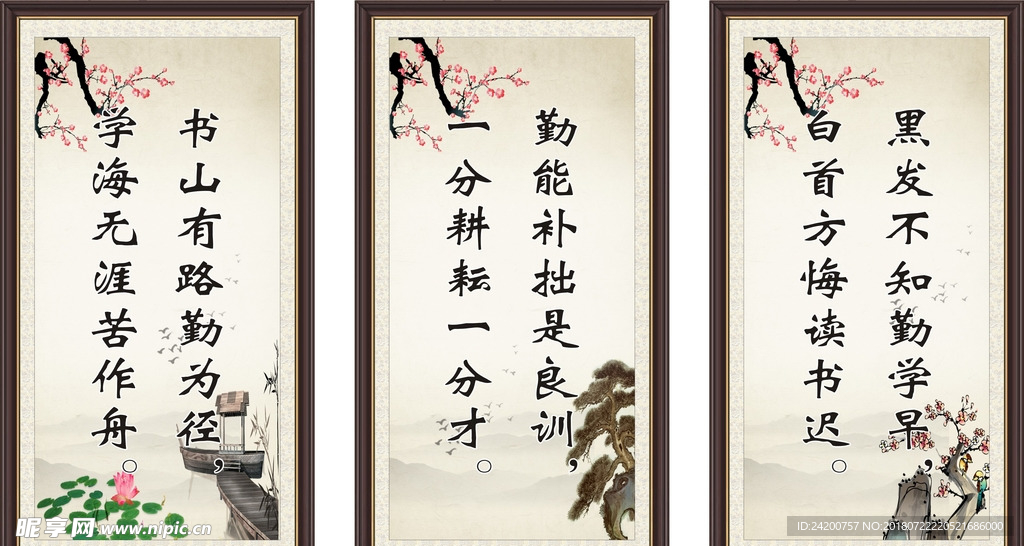 书山有路勤为径，
学海无涯苦作舟。
勤能补拙是良训，
一分耕耘一分才。
黑发不知勤学早，
白首方悔读书迟。
昵享网 www.nipic.cn
ID:24200757 NO:20180722220521686000